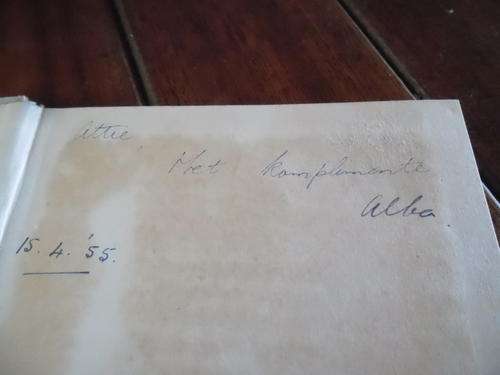 Attie,
Met komplimente
Alba.
15. 4. '55.